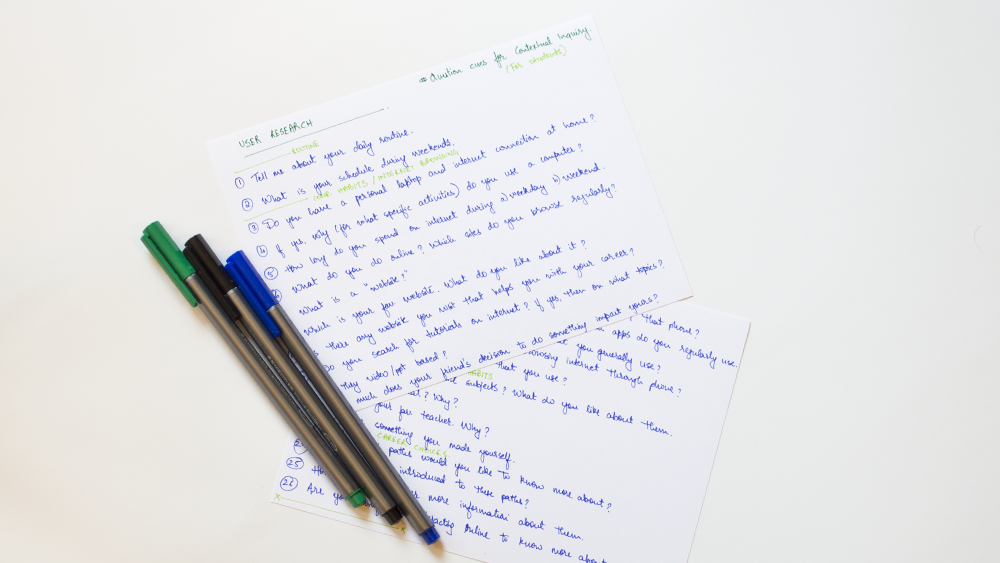 # Question cues for Contextual Inquiry.
(For students)
USER RESEARCH
ROUTINE
① Tell me about your daily routine.
② What is your schedule during weekends.
USER HABITS / INTERNET BROWSING
③ Do you have a personal laptop and internet connection at home?
④ If yes, why (for what specific activities) do you use a computer?
⑤ How long do you spend on internet during a) weekday b) weekend.
What do you do online? Which sites do you browse regularly?
What is a "website?"
Which is your fav website. What do you like about it?
there any website you visit that helps you with your career?
Do you search for tutorials on internet? If yes, then on what topics?
they video/ppt based?
much does your friend's decision to do something impact yours?
that phone?
apps do you regularly use.
you generally use?
browsing internet through phone?
HABITS
that you use?
subjects? What do you like about them.
? Why?
your fav teacher. Why?
something you made yourself.
CAREER CHOICES
paths would you like to know more about?
㉕ introduced to these paths?
㉖ Are you more information about them.
online to know more about